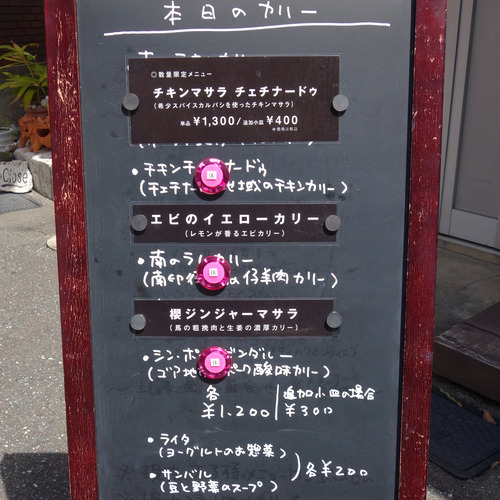 本日のカリー
◎数量限定メニュー
チキンマサラ チェチナードゥ
(希少スパイスカルパシを使ったチキンマサラ)
単品 ¥1,300/追加小皿 ¥400
・チキンチ ナードゥ
(チェチナ 地域のチキンカリー)
エビのイエローカリー
(レモンが香るエビカリー)
・南のラ カリー
(南印 仔羊肉カリー)
櫻ジンジャーマサラ
(馬の粗挽肉と生姜の濃厚カリー)
・シン・ポ ンダルー
(ゴア地 酸味カリー)
各 追加小皿の場合
¥1,200 ¥300
・ライタ
(ヨーグルトのお惣菜)
・サンバル
(豆と野菜のスープ)
各¥200
Close